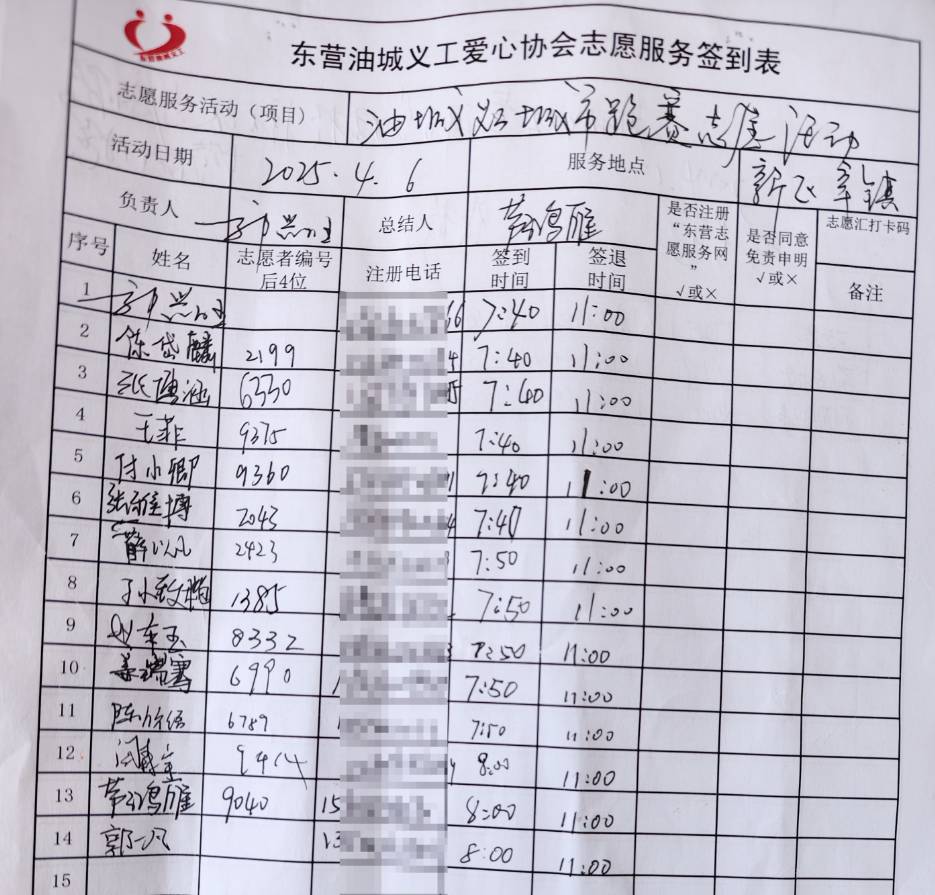 东营油城义工
东营油城义工爱心协会志愿服务签到表
志愿服务活动（项目） 油城义工城市跑赛志愿活动
活动日期 2025.4.6 服务地点 新
负责人 总结人 鸿雁 是否注册“东营志愿服务网”√或× 是否同意免责申明√或× 志愿汇打卡码
序号 姓名 志愿者编号后4位 注册电话 签到时间 签退时间 备注
1 66 7:40 11:00
2 2199 4 7:40 11:00
3 张 涵 6330 5 7:40 11:00
4 王菲 9375 7:40 11:00
5 付小卿 9360 1 7:40 11:00
6 张 博 2043 4 7:40 11:00
7 薛以凡 2423 3 7:50 11:00
8 于小 1385 7:50 11:00
9 赵东玉 8332 3 7:50 11:00
10 姜瑞骞 6990 1 7:50 11:00
11 陈 6789 1 7:50 11:00
12 9414 8:00 11:00
13 鸿雁 9040 15 8:00 11:00
14 郭一凡 13 8:00 11:00
15